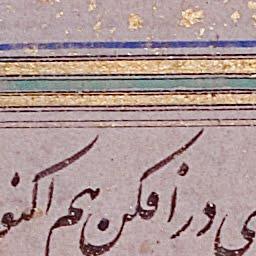 ی در افکن هم اکنو